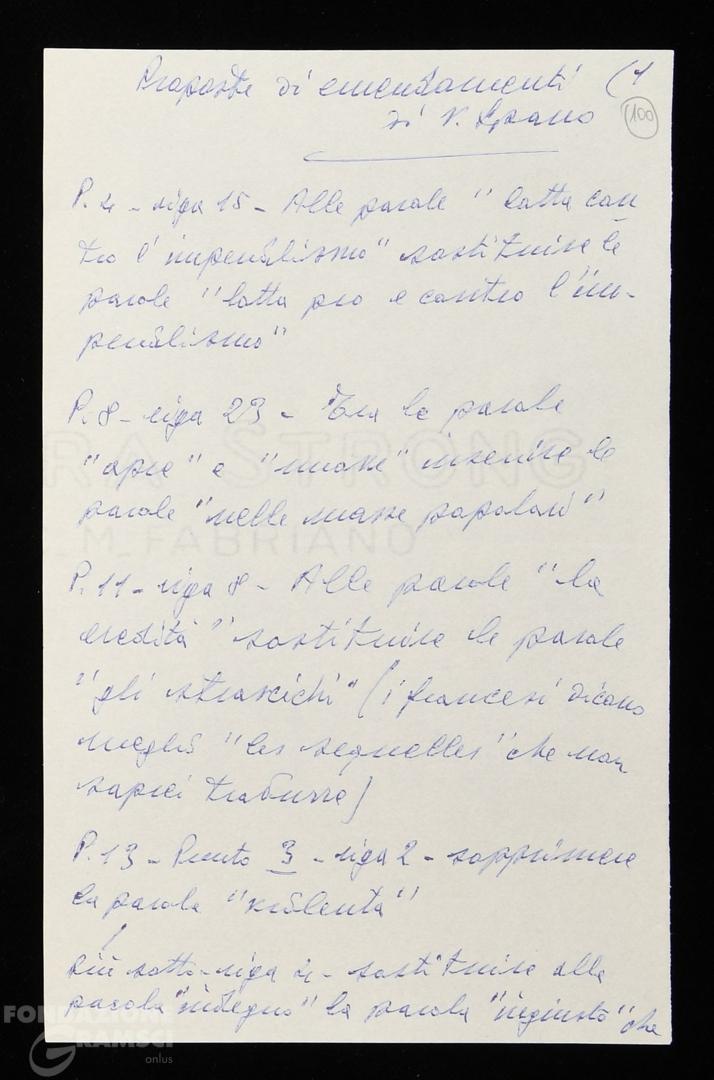 Proposte di emendamenti (1
di V. Spano
100
P. 4 - riga 15 - Alle parole "lotta con
tro l'imperialismo" sostituire le
parole "lotta pro e contro l'im-
perialismo"
P. 8 - riga 23 - Tra le parole
"apre" e "nuove" inserire le
parole "nelle masse popolari"
P. 11 - riga 8 - Alle parole "la
eredità" sostituire le parole
"gli strascichi" (i francesi dicono
meglio "les sequelles" che non
saprei tradurre)
P. 13 - Punto 3 - riga 2 - sopprimere
la parola "violenta"
più sotto - riga 4 - sostituire alla
parola "indegno" la parola "ingiusto" che
RA STRONG
C.M. FABRIANO
FONDAZIONE
GRAMSCI
onlus